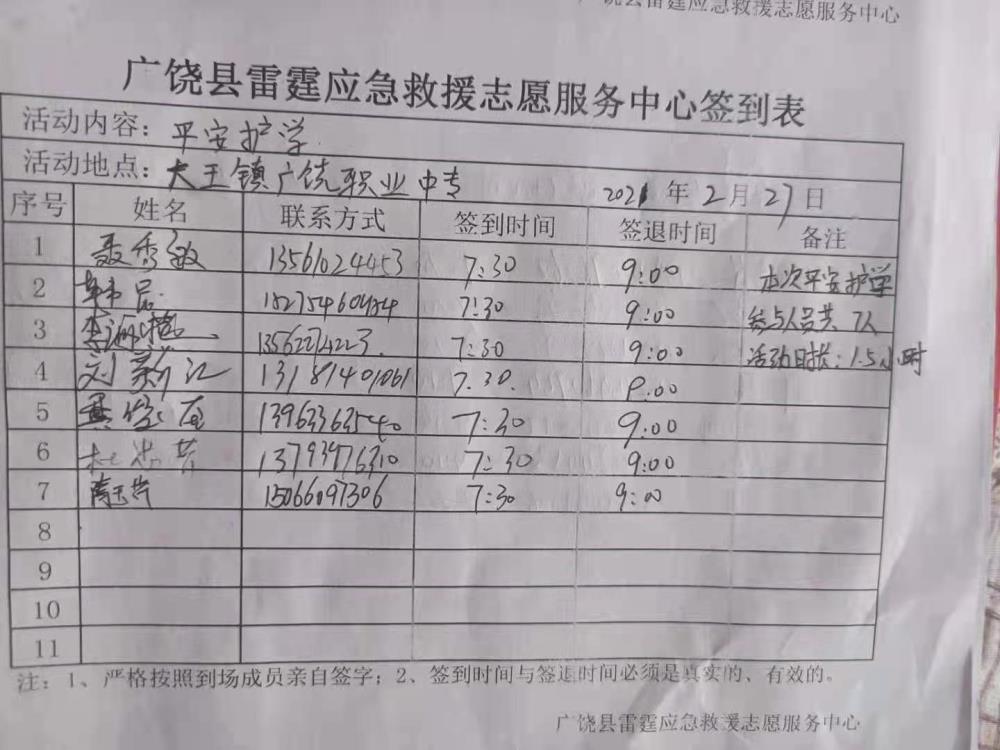 广饶县雷霆应急救援志愿服务中心
广饶县雷霆应急救援志愿服务中心签到表
活动内容：平安护学
活动地点：大王镇广饶职业中专 2021年2月27日
序号 姓名 联系方式 签到时间 签退时间 备注
1 聂秀敏 13561024453 7:30 9:00 本次平安护学
2 韩品 7:30 9:00 参与人员共7人
3 7:30 9:00 活动时长：1.5小时
4 刘新江 13181401061 7:30. 9:00
5 13963363540 7:30 9:00
6 13793976310 7:30 9:00
7 15066097306 7:30 9:00
8
9
10
11
注：1、严格按照到场成员亲自签字；2、签到时间与签退时间必须是真实的、有效的。
广饶县雷霆应急救援志愿服务中心